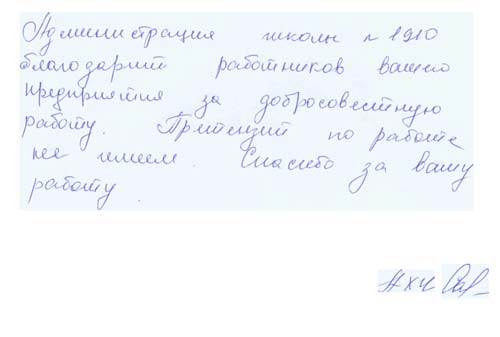 Администрация школы № 1910
благодарит работников вашего
предприятия за добросовестную
работу. Претензий по работе
не имеем. Спасибо за вашу
работу
АХЧ